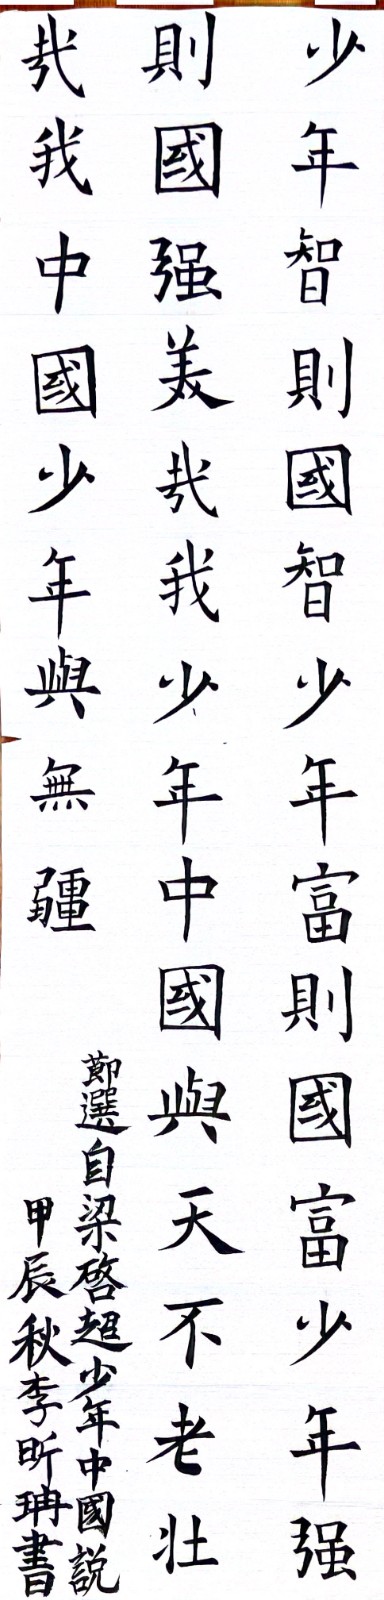 少年智則國智少年富則國富少年强
則國强美哉我少年中國與天不老壯
哉我中國少年與無疆
節選自梁啓超少年中國説
甲辰秋李昕珃書